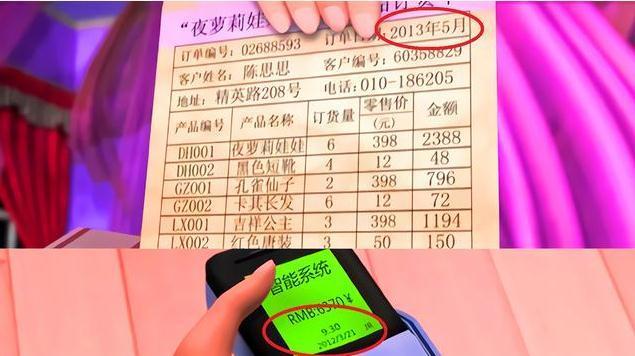 "夜萝莉娃
订单编号: 02688593 订单日期: 2013年5月
客户姓名: 陈思思 客户编号: 60358829
地址: 精英路208号 电话: 010-186205
产品编号 产品名称 订货量 零售价(元) 金额
DH001 夜萝莉娃娃 6 398 2388
DH002 黑色短靴 4 12 48
GZ001 孔雀仙子 2 398 796
GZ002 卡其长发 6 12 72
LX001 吉祥公主 3 398 1194
LX002 红色唐装 3 50 150
智能系统
RMB:6370¥
9.30
2012/3/21